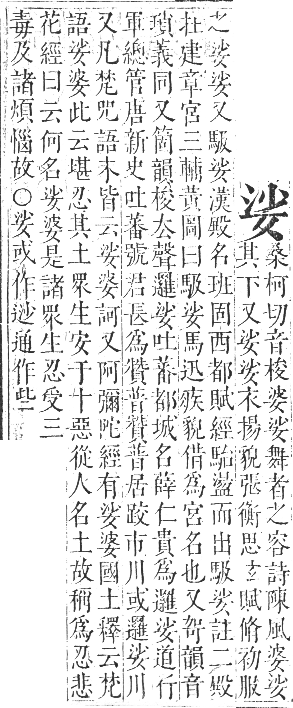 娑
桑柯切音梭婆娑舞者之容詩陳風婆娑
其下又娑娑衣揚貌張衡思玄賦脩初服
之娑娑又馺娑漢殿名班固西都賦經駘盪而出馺娑註二殿
在建章宮三輔黃圖曰馺娑馬迅疾貌借爲宮名也又哿韻音
瑣義同又箇韻梭去聲邏娑吐蕃都城名薛仁貴爲邏娑道行
軍總管唐新史吐蕃號君長爲贊普贊普居跋市川或邏娑川
又凡梵呪語末皆云娑婆訶又阿彌陀經有娑婆國土釋云梵
語娑婆此云堪忍其土眾生安于十惡從人名土故稱爲忍悲
花經曰云何名娑婆是諸眾生忍受三
毒及諸煩惱故○娑或作逤通作些